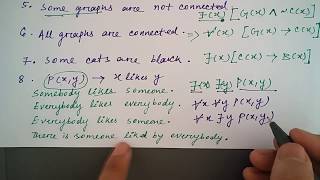 5. Some graphs are not connected ∃(x) [G(x) ∧ ~C(x)]
6. All graphs are connected. → ∀(x) [G(x) → C(x)]
7. Some cats are black. ∃(x) [C(x) → B(x)]
8. P(x,y) → x likes y
Somebody likes someone. ∃x ∃y P(x,y)
Everybody likes everybody. ∀x ∀y P(x,y)
Everybody likes someone. ∀x ∃y P(x,y)
There is someone liked by everybody.